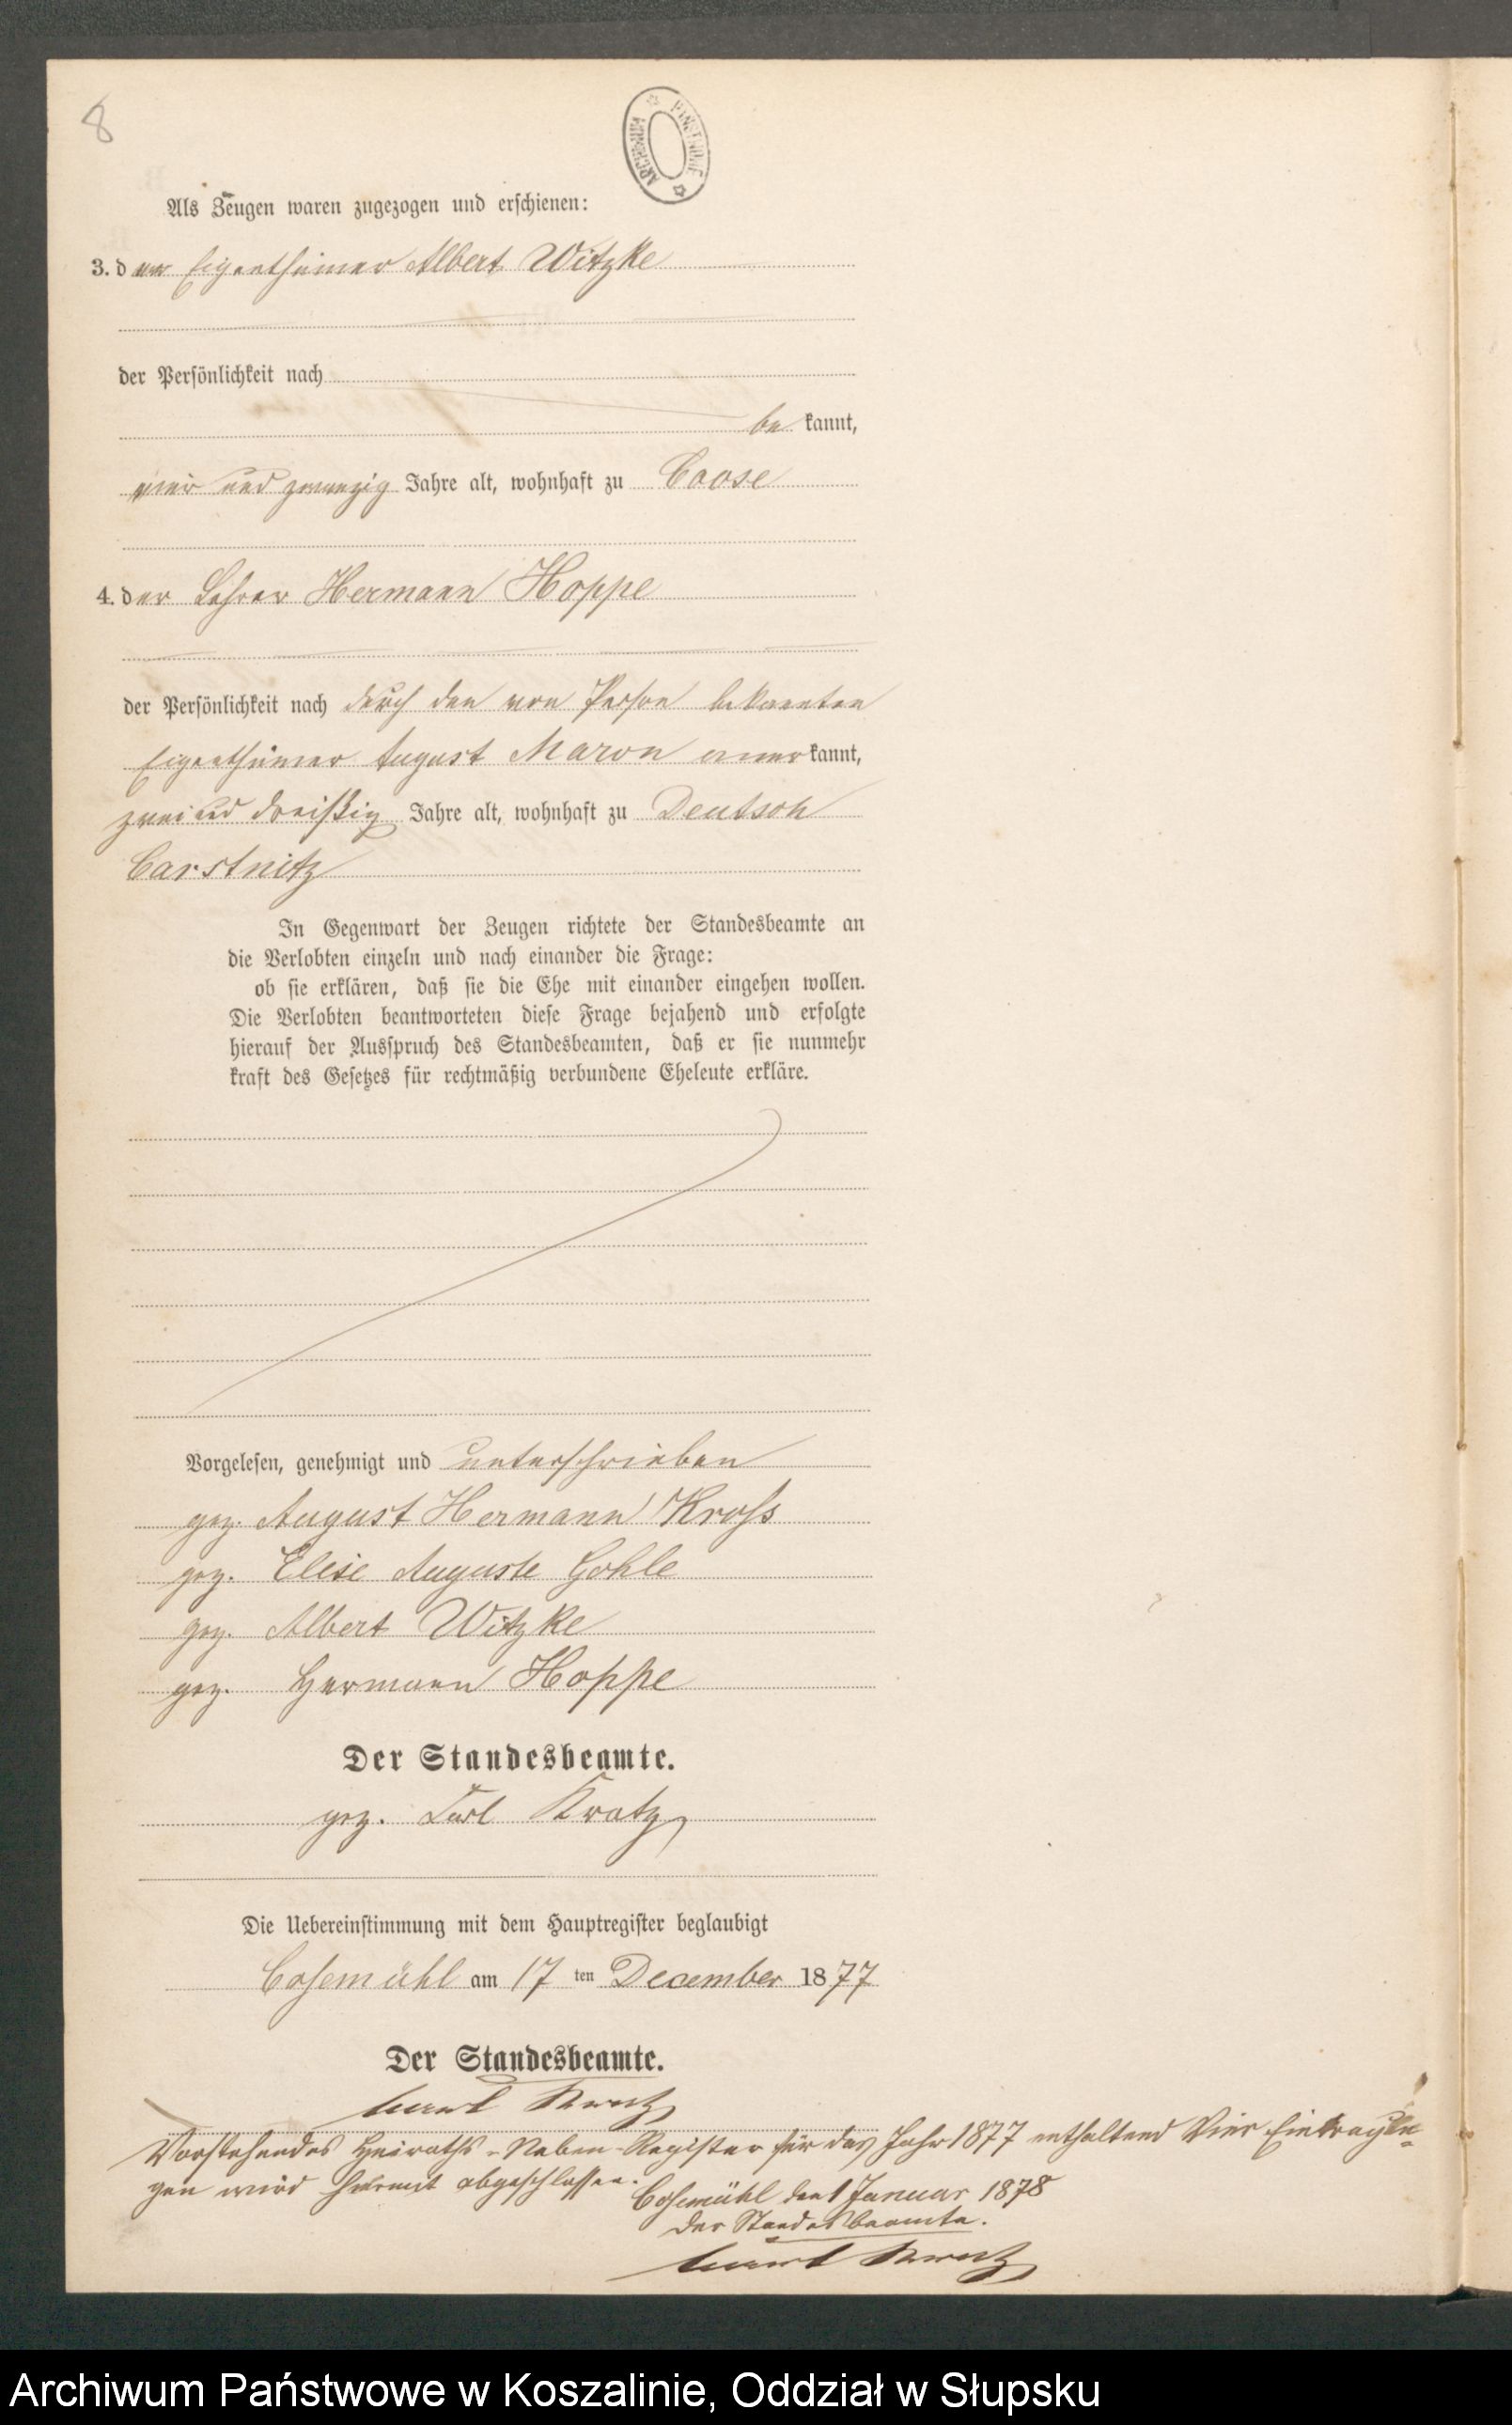 8
ARCHIWUM PAŃSTWOWE
Als Zeugen waren zugezogen und erschienen:
3. der Eigenthümer Albert Witzke
der Persönlichkeit nach
bekannt,
vier und zwanzig Jahre alt, wohnhaft zu Coose
4. der Lehrer Hermann Hoppe
der Persönlichkeit nach durch den von Person bekannten
Eigenthümer August Maron anerkannt,
zwei und dreißig Jahre alt, wohnhaft zu Deutsch
Carstnitz
In Gegenwart der Zeugen richtete der Standesbeamte an
die Verlobten einzeln und nach einander die Frage:
ob sie erklären, daß sie die Ehe mit einander eingehen wollen.
Die Verlobten beantworteten diese Frage bejahend und erfolgte
hierauf der Ausspruch des Standesbeamten, daß er sie nunmehr
kraft des Gesetzes für rechtmäßig verbundene Eheleute erkläre.
Vorgelesen, genehmigt und unterschrieben
gez. August Hermann Kross
gez. Elise Auguste Gohle
gez. Albert Witzke
gez. Hermann Hoppe
Der Standesbeamte.
gez. Kratz
Die Uebereinstimmung mit dem Hauptregister beglaubigt
Cosemühl am 17 ten December 1877
Der Standesbeamte.
Kratz
Vorstehendes Heiraths-Neben-Register für das Jahr 1877 enthaltend Vier Eintragun-
gen wird hiermit abgeschlossen.
Cosemühl den 1 Januar 1878
Der Standesbeamte.
Kratz
Archiwum Państwowe w Koszalinie, Oddział w Słupsku